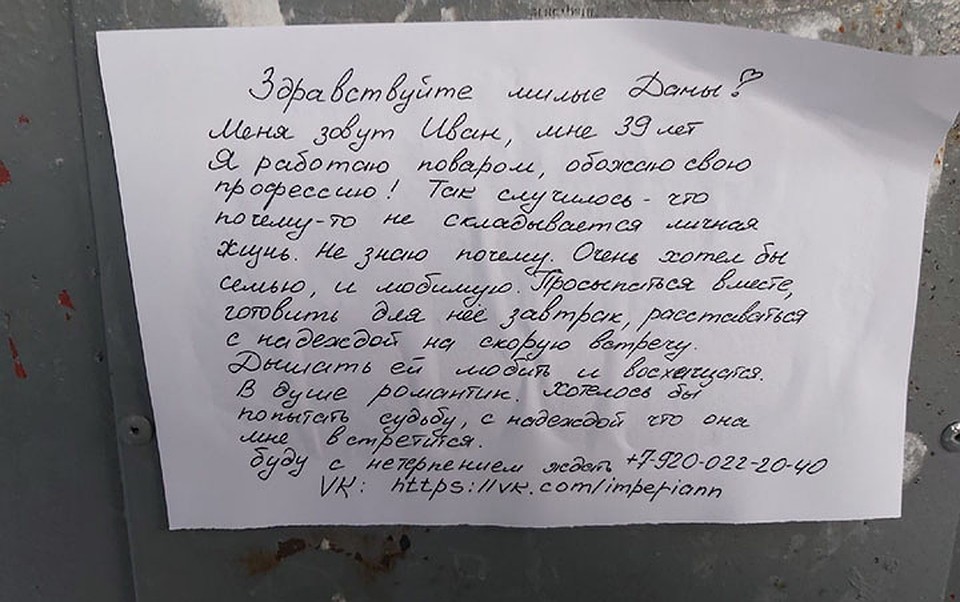 Здравствуйте милые Дамы!
Меня зовут Иван, мне 39 лет
Я работаю поваром, обожаю свою
профессию! Так случилось - что
почему-то не складывается личная
жизнь. Не знаю почему. Очень хотел бы
семью, и любимую. Просыпаться вместе,
готовить для неё завтрак, расставаться
с надеждой на скорую встречу.
Дышать ей любить и восхищатся.
В душе романтик. Хотелось бы
попытать судьбу, с надеждой что она
мне встретится.
буду с нетерпением ждать +7-920-022-20-40
VK: https://vk.com/imperiann